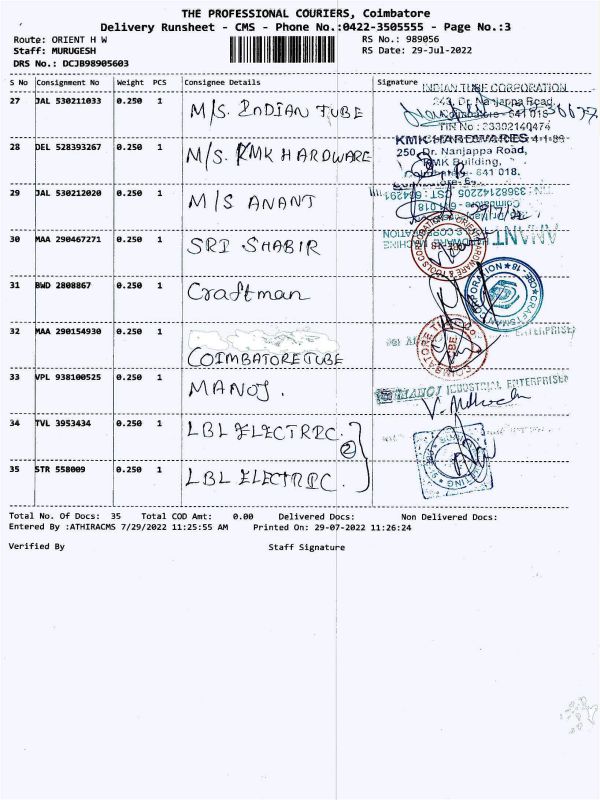 THE PROFESSIONAL COURIERS, Coimbatore
Delivery Runsheet - CMS - Phone No.:0422-3505555 - Page No.:3
Route: ORIENT H W RS No.: 989056
Staff: MURUGESH RS Date: 29-Jul-2022
DRS No.: DCJB98905603
S No Consignment No Weight PCS Consignee Details Signature
27 JAL 530211033 0.250 1 M/S. INDIAN TUBE
INDIAN TUBE CORPORATION
243, Dr. Nanjappa Road,
Coimbatore - 641 018
28 DEL 528393267 0.250 1 M/S. KMK HARDWARE
KMK HARDWARES
250, Dr. Nanjappa Road,
KMK Building,
29 JAL 530212020 0.250 1 M/S ANANT
ANANT
30 MAA 290467271 0.250 1 SRI SHABIR
31 BWD 2808867 0.250 1 Craftman
32 MAA 290154930 0.250 1 COIMBATORE TUBE
33 VPL 938100525 0.250 1 MANOJ.
MANOJ INDUSTRIAL ENTERPRISES
34 TVL 3953434 0.250 1 LBL ELECTRIC.
2
35 STR 558009 0.250 1 LBL ELECTRIC.
Total No. Of Docs: 35 Total COD Amt: 0.00 Delivered Docs: Non Delivered Docs:
Entered By :ATHIRACMS 7/29/2022 11:25:55 AM Printed On: 29-07-2022 11:26:24
Verified By Staff Signature